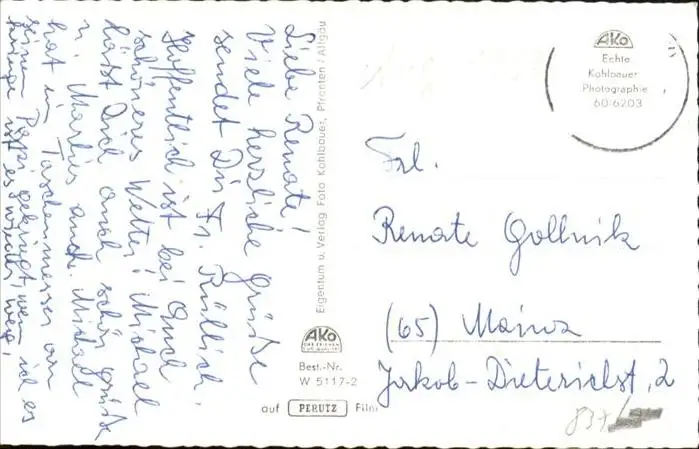 Liebe Renate!
Viele herzliche Grüße
sendet Dir Fr. Rüllich.
Hoffentlich ist bei Euch
schöneres Wetter! Michael
läßt Dich auch schön grüße
u. Marlies auch. Michael
hat ein Taschenmesser von
seinem Pappi gekriegt, wenn ich es
kriege ist es wieder weg.
Eigentum u. Verlag Foto Kohlbauer, Pfronten / Allgäu
AKO
Best.-Nr.
W 5117-2
auf PERUTZ Film
AKO
Echte
Kohlbauer
Photographie
60/6203
Frl.
Renate Gollnik
(65) Mainz
Jakob-Dieterichst. 2